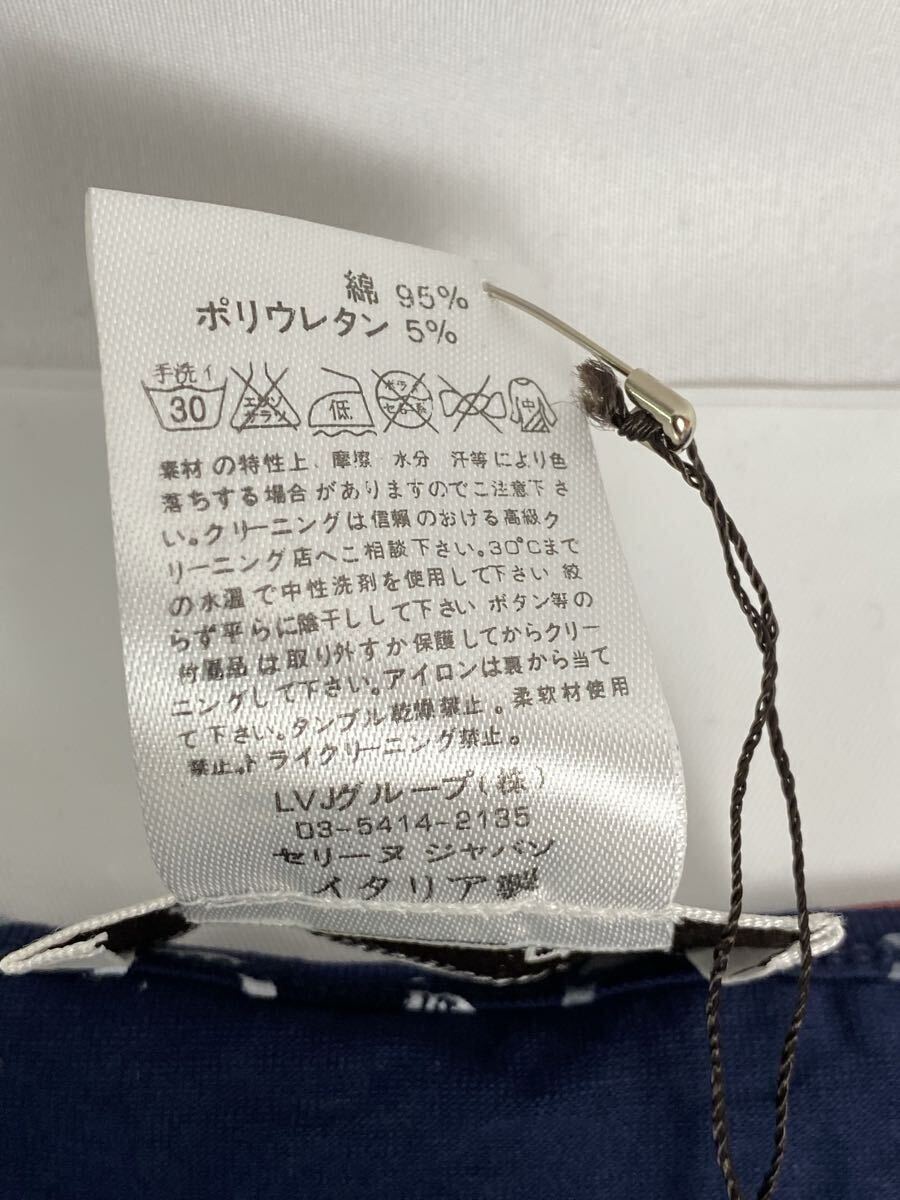 綿 95%
ポリウレタン 5%
手洗イ
30
エンソ
サラシ
低
セキユ系
中
素材の特性上、摩擦 水分 汗等により色
落ちする場合がありますのでご注意下さ
い。クリーニングは信頼のおける高級ク
リーニング店へご相談下さい。30℃まで
の水温で中性洗剤を使用して下さい 絞
らず平らに陰干しして下さい ボタン等の
付属品は取り外すか保護してからクリー
ニングして下さい。アイロンは裏から当て
て下さい。タンブル乾燥禁止。柔軟材使用
禁止。ドライクリーニング禁止。
LVJグループ(株)
03-5414-2135
セリーヌ ジャパン
イタリア製